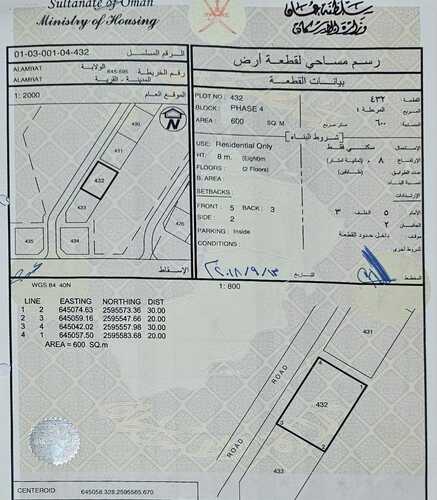 Sultanate of Oman
Ministry of Housing
سلطنة عمان
وزارة الإسكان
01-03-001-04-432
الرقم المسلسل
ALAMRAT
الولاية
645-595
رقم الخريطة
ALAMRAT
المدينة - القرية
1: 2000
الموقع العام
N
430
431
432
433
435
434
الإسقاط
رسم مساحي لقطعة أرض
بيانات القطعة
PLOT NO : 432
القطعة : ٤٣٢
BLOCK : PHASE 4
المربع : المرحلة ٤
AREA : 600 SQ. M
المساحة : ٦٠٠ متر مربع
شروط البناء
USE: Residential Only
الاستعمال : سكني فقط
HT: 8 m. (Eight)m
الارتفاع : ٠٨ (ثمانية أمتار)
FLOORS : (2 Floors)
عدد الطوابق (طابقين)
B. AREA :
نسبة البناء
SETBACKS
الارتدادات
FRONT : 5 BACK : 3
الأمام ٥ الخلف ٣
SIDE : 2
الجانب ٢
PARKING : Inside
موقف داخل حدود القطعة
CONDITIONS :
شروط أخرى
٢٠١٨/٩/٣
التاريخ
المخطط
WGS 84 40N
1: 800
LINE EASTING NORTHING DIST
1 2 645074.63 2595573.36 30.00
2 3 645059.16 2595547.66 20.00
3 4 645042.02 2595557.98 30.00
4 1 645057.50 2595583.68 20.00
AREA = 600 SQ.m
431
432
433
ROAD
ROAD
4
1
3
2
CENTEROID 645058.328,2595565.670